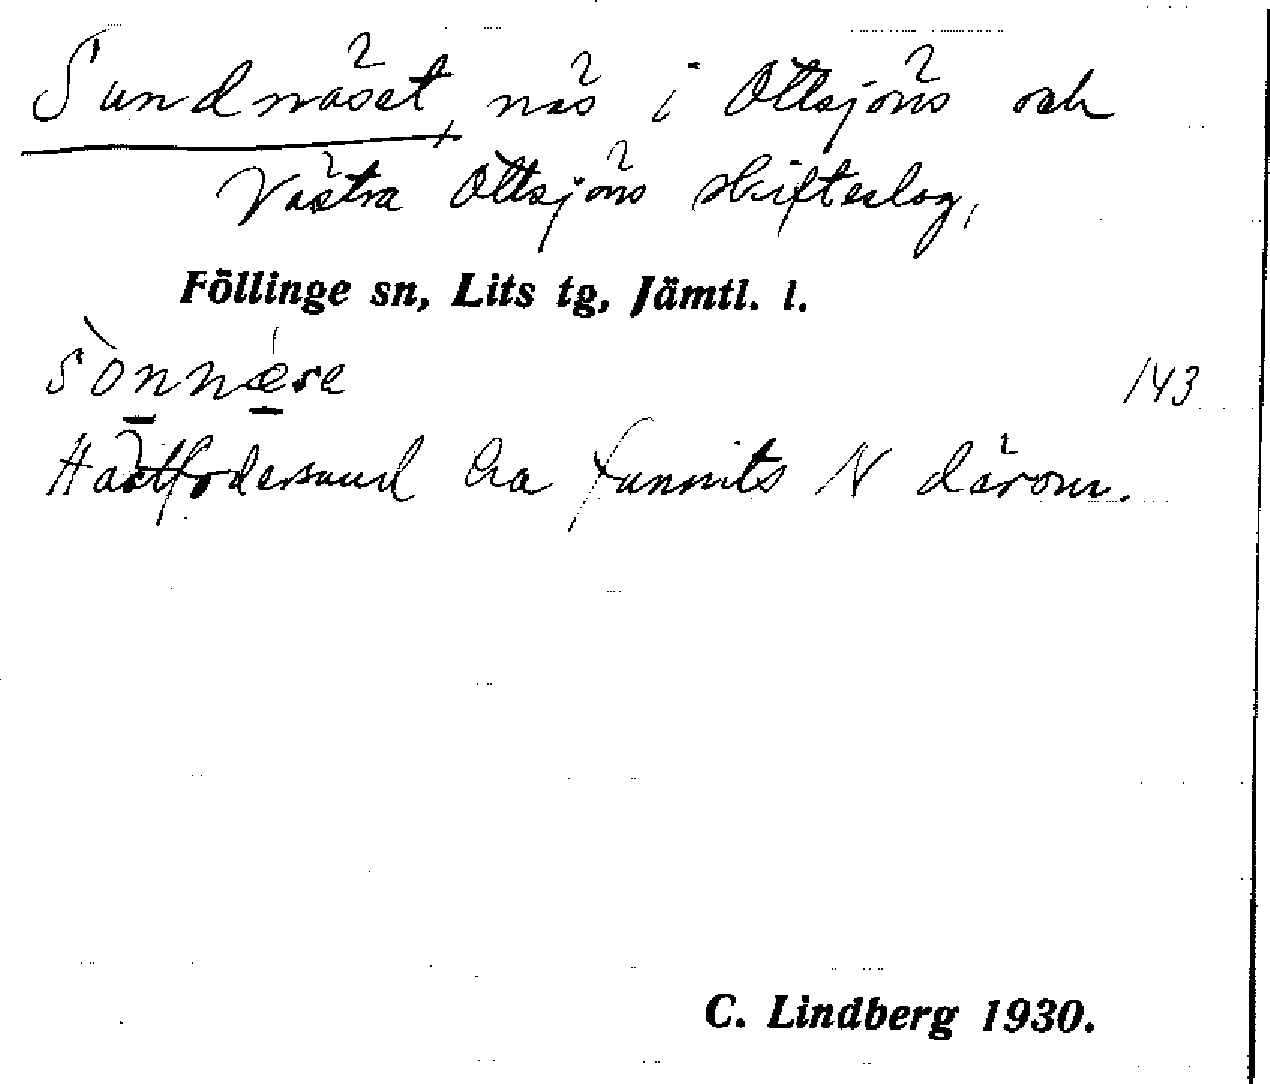 Sundnäset, näs i Ottsjöns och
Västra Ottsjöns skifteslag,
Föllinge sn, Lits tg, Jämtl. l.
sònnǽse
143
ha funnits N därom.
C. Lindberg 1930.